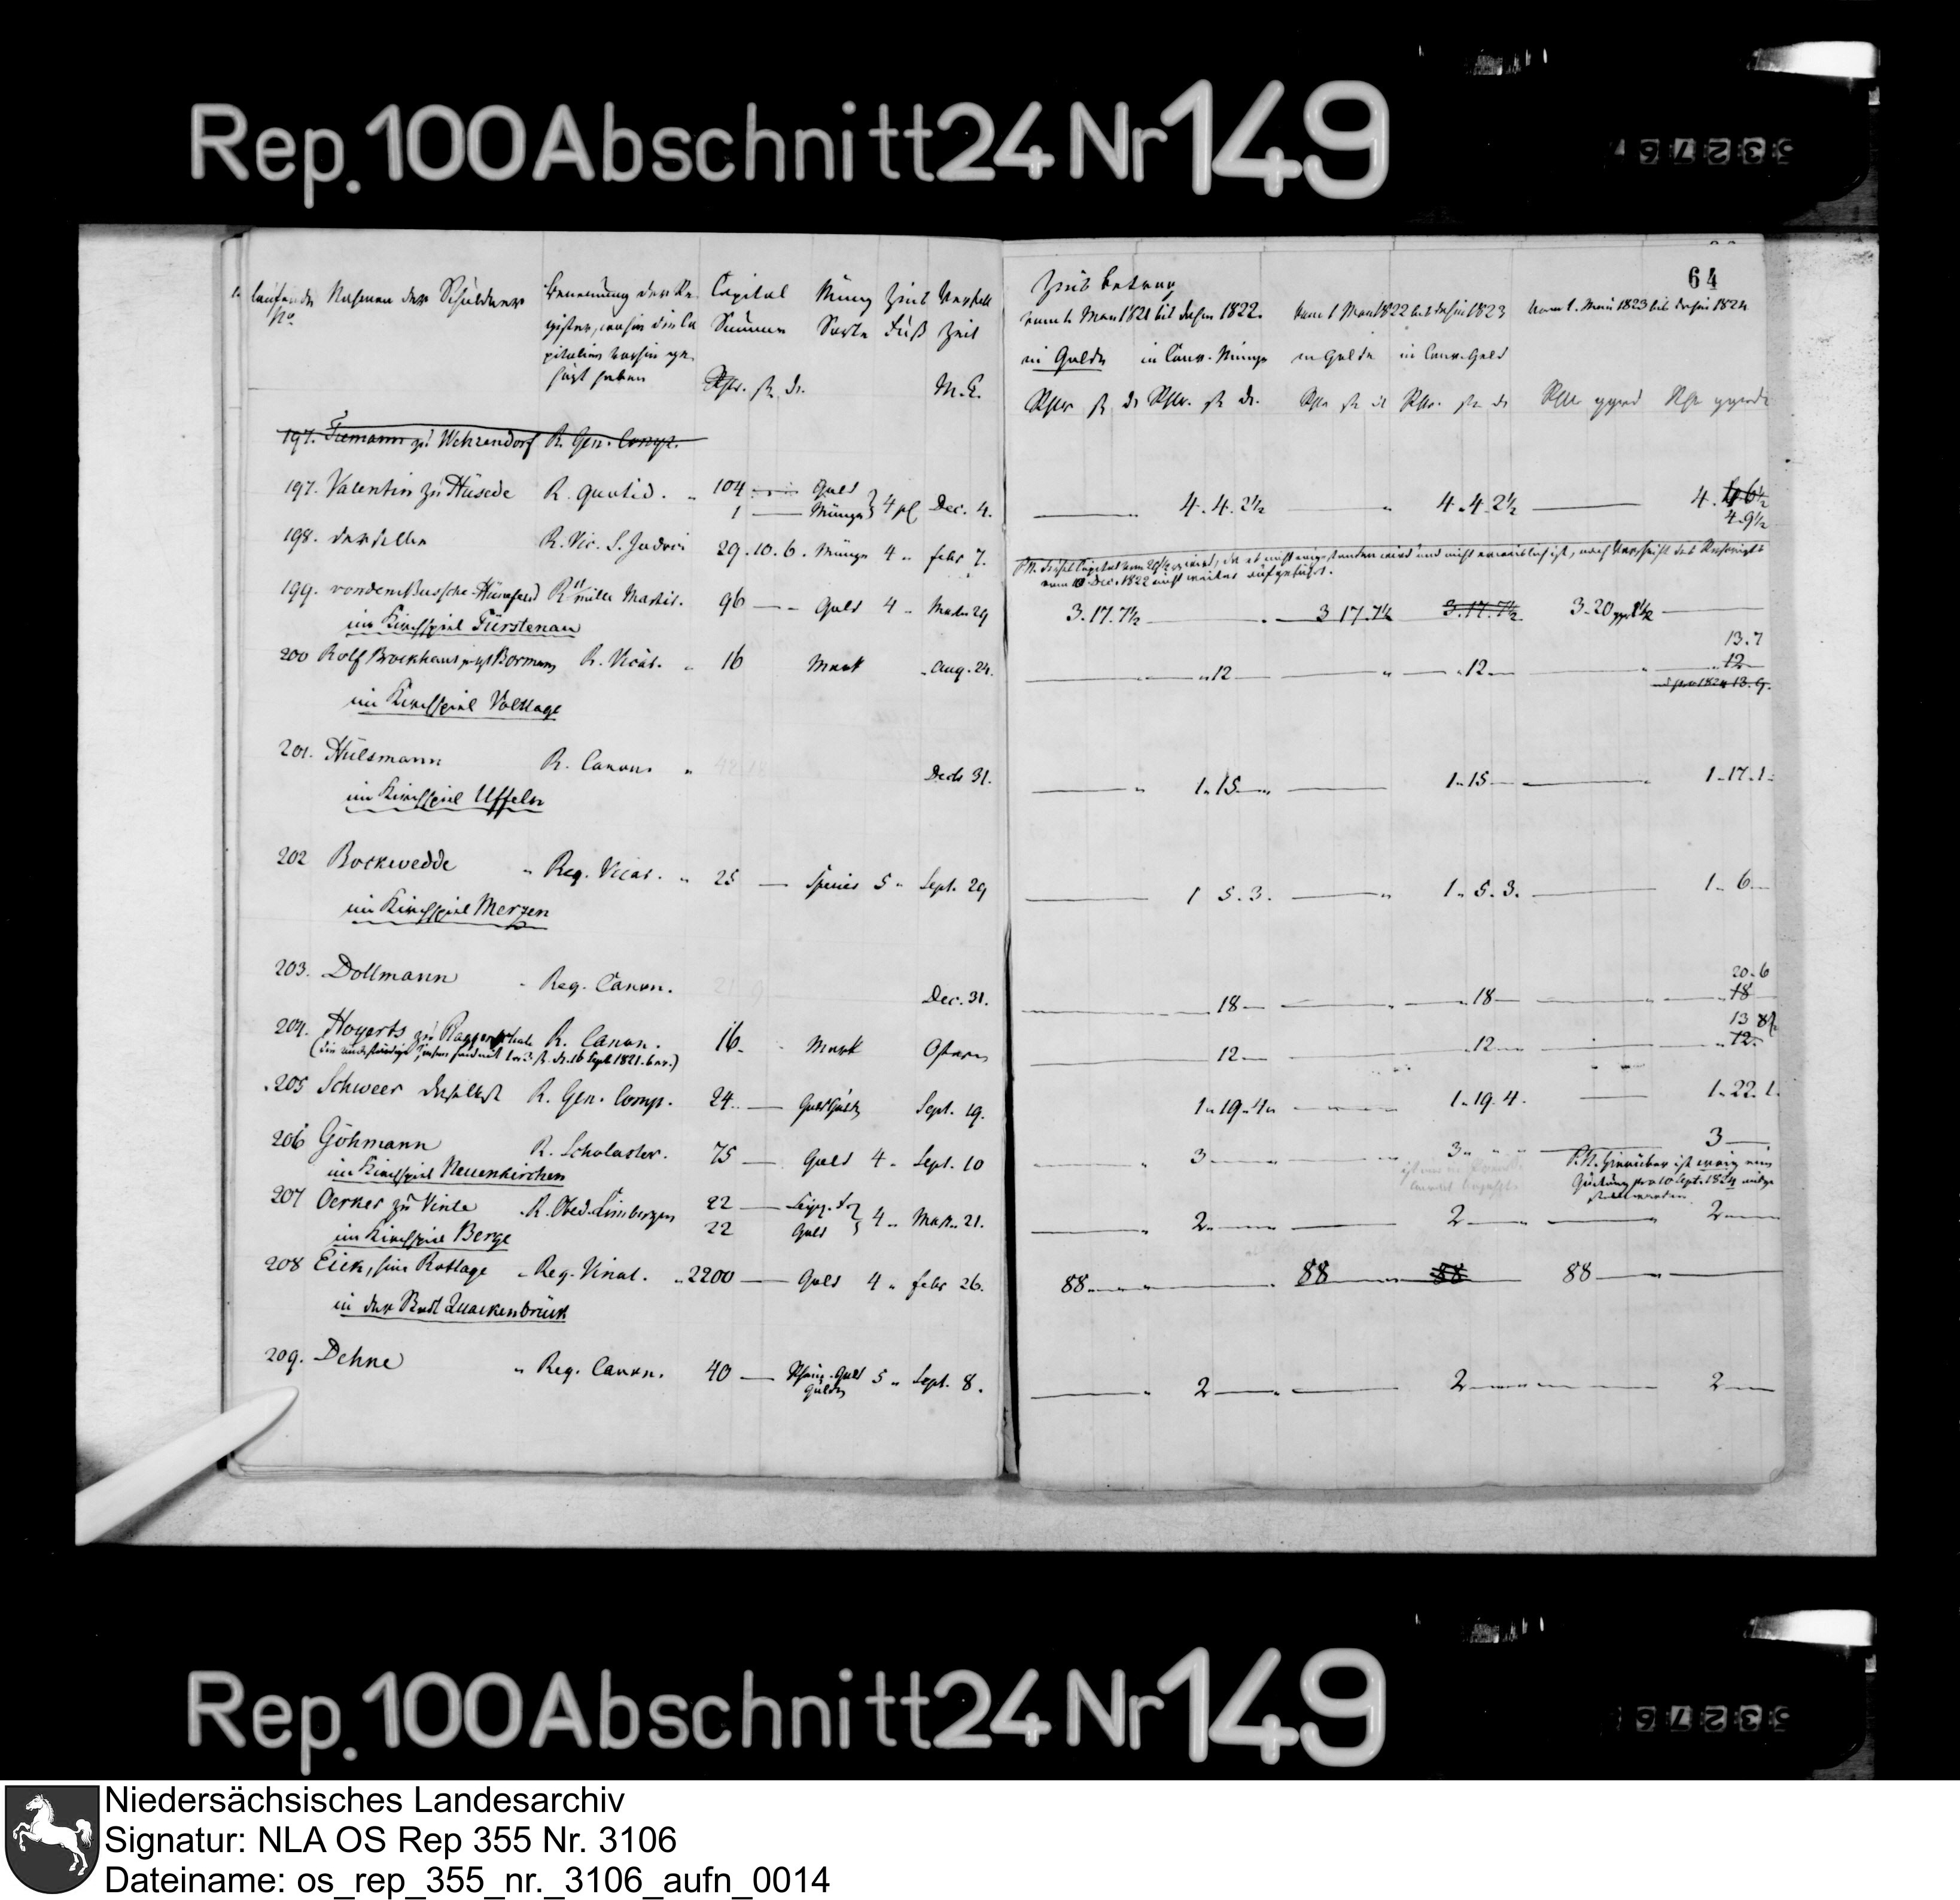 Rep. 100 Abschnitt 24 Nr 149
64
laufende Nahmen der Schuldner Benennung der Re- Capital Müntz Zins Verfall
No gister, wohin die Ca Summe Sorte Fuß Zeit
pitalien vorhin ge-
hört haben Rthr. ß. d. M. T.
Zins betrag
vom 1. May 1821 bis dahin 1822. vom 1 May 1822 bis dahin 1823 vom 1. Mai 1823 bis dahin 1824
in Golde in Conv. Münze in Golde in Conv. Geld
Rthlr ß d Rthlr. ß d. Rthlr ß d Rthlr. ß d Rthlr ggr d Rthlr ggr d
197. Tiemann zu Wehrendorf R. Gen. Comp.
197. Valentin zu Hüsede R. quotid. 104 Gold 4 pC Dec. 4. 4. 4. 2½ 4. 4. 2½ 4. 4. 6½
1 Münze 4. 9½
198. derselbe R. Vic. S. Judoci 29. 10. 6. Münze 4 febr 7.
vom 10 Dec. 1822 nicht weiter aufgeführt.
199. von dem Bussche-Hünefeld R mille Martir. 96 Gold 4 29 3. 17. 7½ 3 17. 7½ 3. 17. 7½ 3. 20
im Kirchspiel Fürstenau
200 Rolf Brockhaus Bormann R. Vicar. 16 Mark Aug. 24. 12 12 13. 7
12
im Kirchspiel Voltlage
201. Hülsmann R. Canon. Decb 31. 1. 15 1. 15 1. 17. 1
im Kirchspiel Uffeln
202 Bockwedde Reg. Vicar. 25 Species 5 Sept. 29 1 5. 3. 1. 5. 3. 1. 6
im Kirchspiel Merzen
203. Dollmann Reg. Canon. Dec. 31. 18 18 20. 6
18
204. Hogerts zu R. Canon. 16. Mark Ostern 12 12 13 8
12
205 Schweer daselbst R. Gen. Comp. 24. Goldguld Sept. 19. 1. 19. 4 1. 19. 4. 1. 22. 1.
206 Göhmann R. Scholaster. 75 Gold 4 Sept. 10 3 3 3
P.N. hierüber ist
Quitung pro 10 Sept. 1824
im Kirchspiel Neuenkirchen
207 Oerker zu Vinte R. Obed. Limbergen 22 4 21. 2 2 2
22 Gold
im Kirchspiel Berge
208 Eick, sive Rottage Reg. Vicat. 2200 Gold 4 febr 26. 88 88 88 88
in der Stadt Quackenbrück
209. Dehne Reg. Canon. 40 Rhein. Gold 5 Sept. 8. 2 2 2
Gulden
Rep. 100 Abschnitt 24 Nr 149
Niedersächsisches Landesarchiv
Signatur: NLA OS Rep 355 Nr. 3106
Dateiname: os_rep_355_nr._3106_aufn_0014